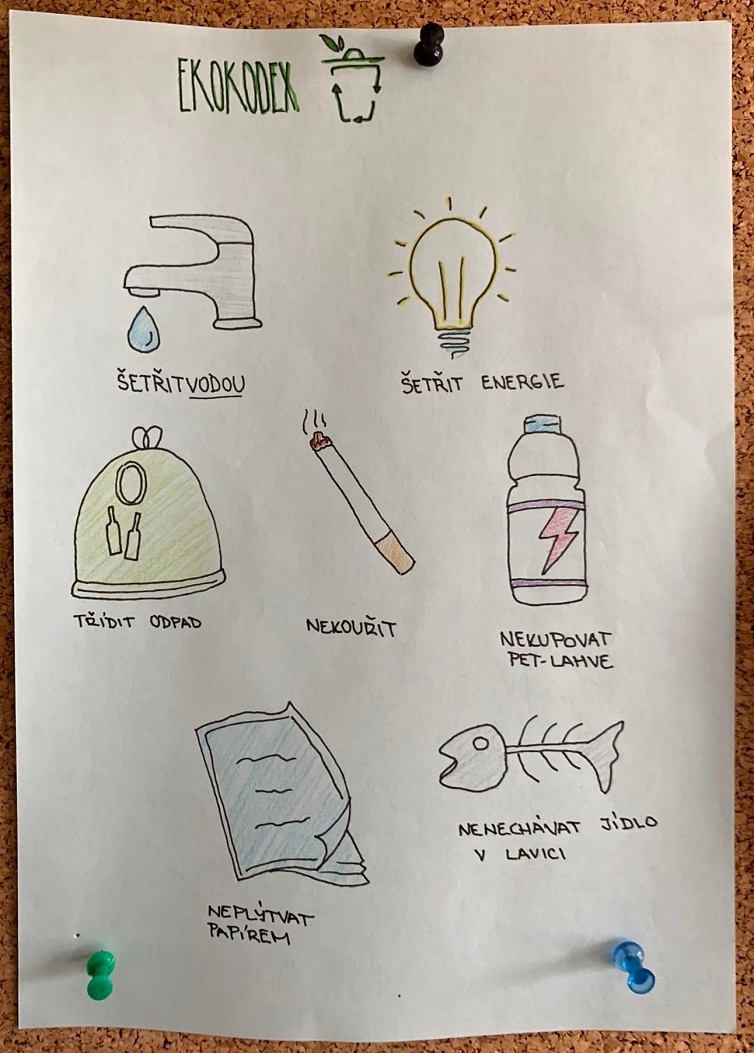 EKOKODEX
ŠETŘIT VODOU
ŠETŘIT ENERGIE
TŘÍDIT ODPAD
NEKOUŘIT
NEKUPOVAT
PET-LAHVE
NEPLÝTVAT
PAPÍREM
NENECHÁVAT JÍDLO
V LAVICI